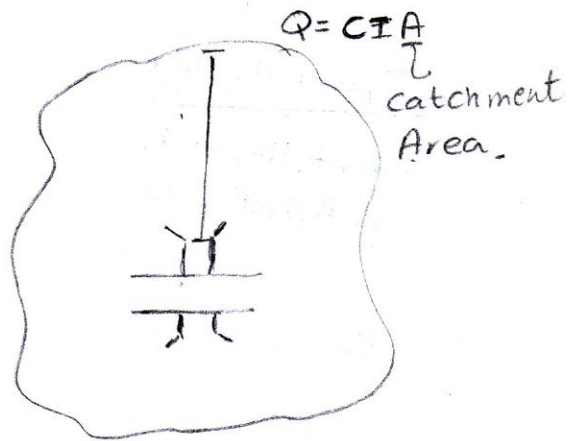 Q= CIA
catchment
Area.